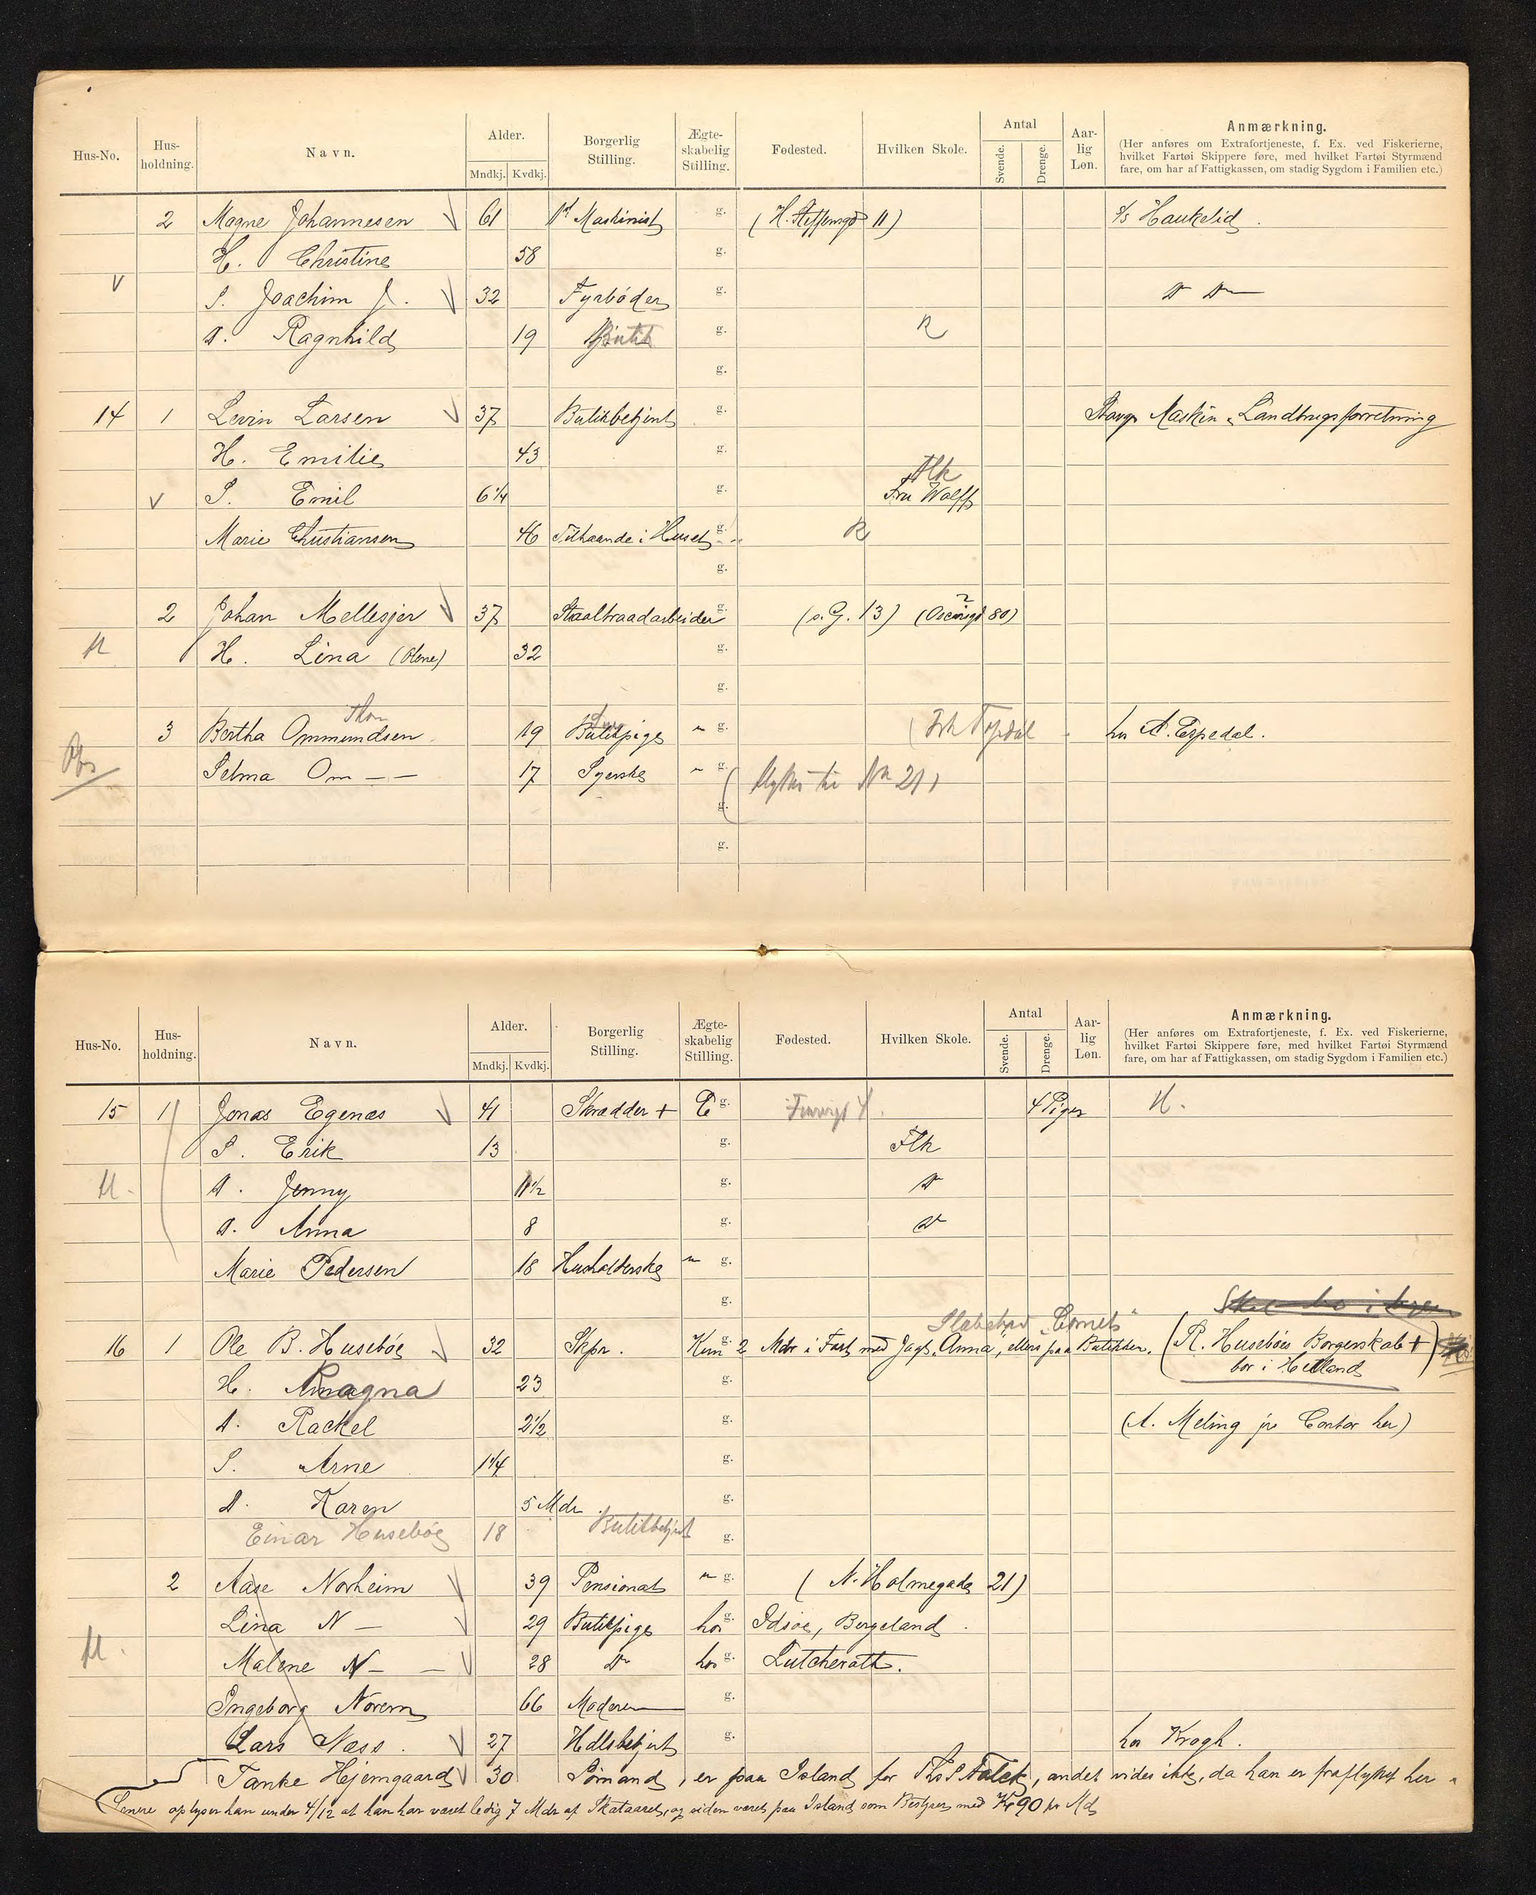 Hus-No. Hus-holdning. Navn. Alder. Mndkj. Kvdkj. Borgerlig Stilling. Ægte-skabelig Stilling. Fødested. Hvilken Skole. Antal Svende. Drenge. Aar-lig Løn. Anmærkning.
(Her anføres om Extrafortjeneste, f. Ex. ved Fiskerierne,
hvilket Fartøi Skippere føre, med hvilket Fartøi Styrmænd
fare, om har af Fattigkassen, om stadig Sygdom i Familien etc.)
2 Magne Johannesen 61 1st Maskinist g. (H. Steffensgd 11) s/s Haukelid.
H. Christine 58 g.
S. Joachim J. 32 Fyrbøder g. D D
D. Ragnhild 19 Butik g. R
g.
14 1 Levin Larsen 37 Butikbetjent g. Stavgr Maskin & Landbrugsforretning
H. Emilie 43 g.
Flk
S. Emil 6 1/4 g. Fru Wolff
Marie Christiansen 46 Tilhaande i Huset g. R
g.
2 Johan Mellesjer 37 Staaltraadarbeider g. (o.G. 13) 80)
H. Lina (Olene) 32 g.
g.
3 Bertha Ommundsen 19 Butikpige g. hr A. Espedal.
Obs Selma Om — — 17 Syerske g. ( flyttet til No 21)
g.
g.
Hus-No. Hus-holdning. Navn. Alder. Mndkj. Kvdkj. Borgerlig Stilling. Ægte-skabelig Stilling. Fødested. Hvilken Skole. Antal Svende. Drenge. Aar-lig Løn. Anmærkning.
(Her anføres om Extrafortjeneste, f. Ex. ved Fiskerierne,
hvilket Fartøi Skippere føre, med hvilket Fartøi Styrmænd
fare, om har af Fattigkassen, om stadig Sygdom i Familien etc.)
15 1 Jonas Egenæs 41 Skrædder + E g. 4 Piger H.
S. Erik 13 g. Flk
D. Jenny 11 1/2 g. D
D. Anna 8 g. D
Marie Pedersen 18 Husholderske g.
g.
Skal bo i
16 1 Ole B. Husebøe 32 Skpr. Kun g. 2 Mdr i Fart med Jagt "Anna", ellers paa Butikken. (R. Husebøes Borgerskab +)
bor i Hetland
H. Magna 23 g.
D. Rackel 2 1/2 g. (A. Meling jr Contor her)
S. Arne 1 1/4 g.
D. Karen 5 Mdr g.
Einar Husebøe 18 Butikbetjent g.
2 Aase Norheim 39 Pensionat g. (N. Holmegade 21)
Lina N — 29 Butikpige hos g. Idsøe, Bergeland.
Malene N — 28 D hos g. Lutcherath.
Ingeborg Norem 66 Moderen g.
Lars Næss. 27 Hdlsbetjent g. hos Krogh.
Tanke Hjemgaard 30 Sømand, er paa Island for Th. S. Falck, andet vides ikke, da han er fraflyttet her.
Senere oplyser han under 4/12 at han har været ledig 7 Mdr af Skataaret, og siden været paa Island som Bestyrer med Kr 90 pr Md